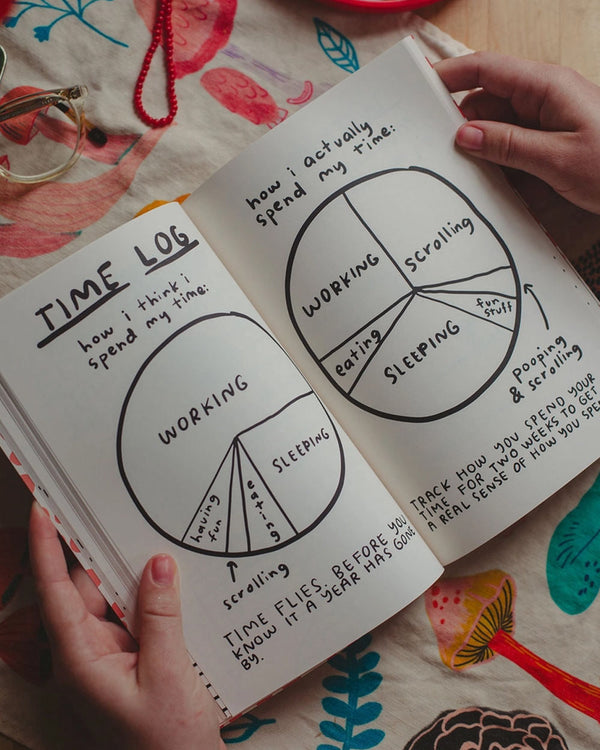 TIME LOG
how i think i
spend my time:
WORKING
SLEEPING
having
fun
eating
scrolling
TIME FLIES. BEFORE YOU
KNOW IT A YEAR HAS GONE
BY.
how i actually
spend my time:
WORKING
scrolling
eating
SLEEPING
fun
stuff
pooping
& scrolling
TRACK HOW YOU SPEND YOUR
TIME FOR TWO WEEKS TO GET
A REAL SENSE OF HOW YOU